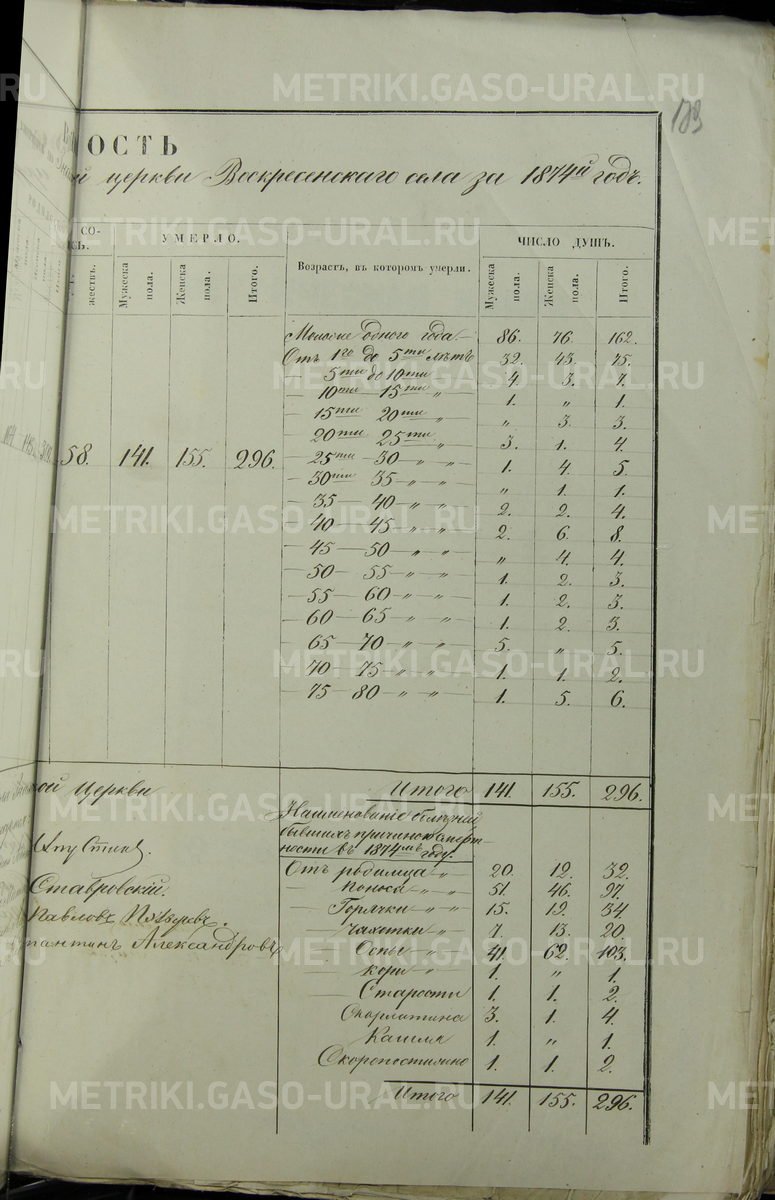 METRIKI.GASO-URAL.RU
133
ОСТЬ
церкви Воскресенскаго села за 1874й годъ.
СО-
УМЕРЛО.
ЧИСЛО ДУШЪ.
жествъ.
Мужеска пола.
Женска пола.
Итого.
Возрастъ, въ которомъ умерли.
Мужеска пола.
Женска пола.
Итого.
58. 141. 155. 296.
Моложе одного года — 86. 76. 162.
Отъ 1го до 5ти лѣтъ 32. 43. 75.
— 5ти до 10ти 4. 3. 7.
— 10ти — 15ти „ 1. „ 1.
— 15ти 20ти „ „ 3. 3.
— 20ти 25ти „ 3. 1. 4.
— 25ти — 30 — „ — „ 1. 4. 5.
— 30ти 35 — „ — „ „ 1. 1.
— 35 — 40 — „ — „ 2. 2. 4.
— 40 — 45 — „ — „ 2. 6. 8.
— 45 — 50 — „ — „ „ 4. 4.
— 50 — 55 — „ — „ 1. 2. 3.
— 55 — 60 — „ — „ 1. 2. 3.
— 60 — 65 — „ — „ 1. 2. 3.
— 65 — 70 — „ — „ 5. „ 5.
— 70 — 75 — „ — „ 1. 1. 2.
— 75 — 80 — „ — „ 1. 5. 6.
Итого 141. 155. 296.
ной церкви
Наименованіе болѣзней
бывшихъ причиною смерт-
ности въ 1874мъ году.
Ставровскій.
Павловъ
Александровъ
Отъ родимца „ 20. 12. 32.
— Поноса „ 51. 46. 97.
— Горячки — „ — „ 15. 19. 34.
— Чахотки — „ 7. 13. 20.
— Оспы „ 41. 62. 103.
— Кори — „ 1. „ 1.
— Старости 1. 1. 2.
Скарлатина 3. 1. 4.
Кашля 1. „ 1.
Скоропостижно 1. 1. 2.
Итого 141. 155. 296.